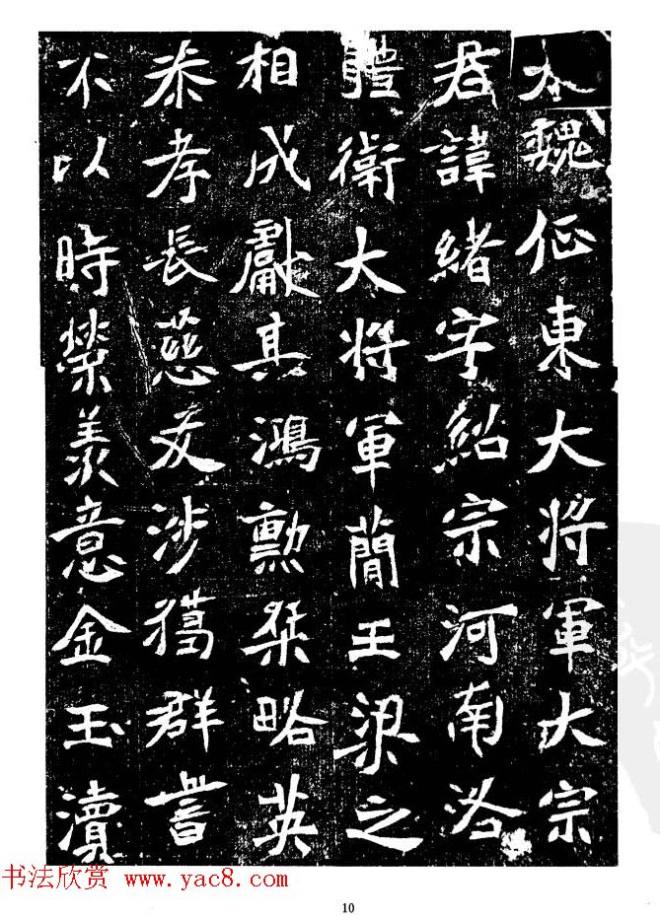 大魏征東大将軍大宗
君諱緒字紹宗河南洛
體衛大将軍蕳王梁之
相成獻其鴻勲桀略英
恭孝長慈友涉獦群書
不以時榮羡意金玉瀆
书法欣赏 www.yac8.com
10